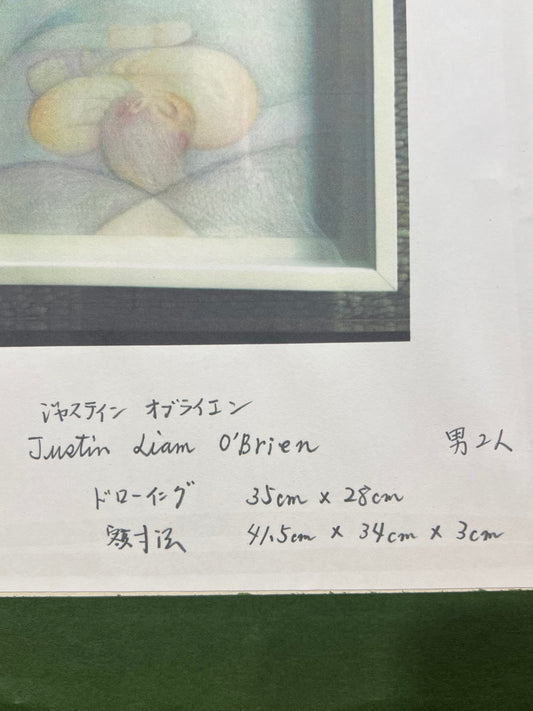 ジャスティン オブライエン
Justin Liam O'Brien 男2人
ドローイング 35cm x 28cm
額寸法 41.5cm x 34cm x 3cm